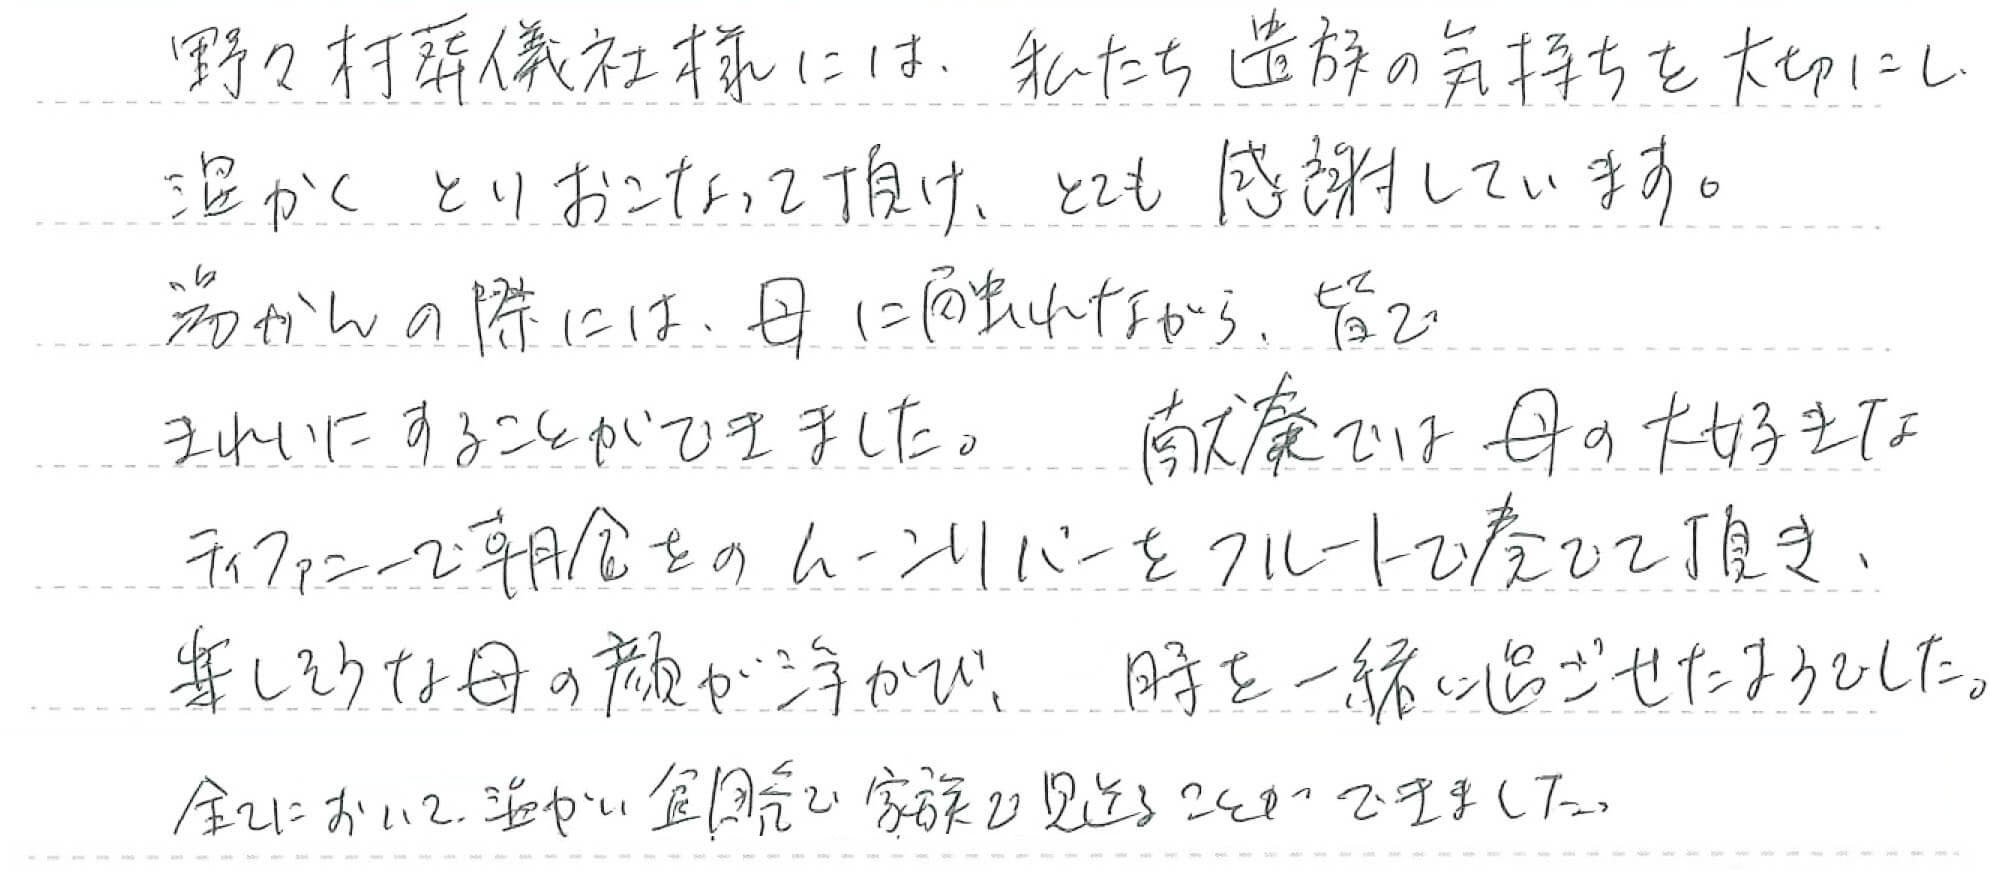 野々村葬儀社様には、私たち遺族の気持ちを大切にし、
温かくとりおこなって頂け、とても感謝しています。
湯かんの際には、母に触れながら、皆で
きれいにすることができました。 献奏では母の大好きな
ティファニーで朝食をのムーンリバーをフルートで奏でて頂き、
楽しそうな母の顔が浮かび、 時を一緒に過ごせたようでした。
全てにおいて、温かい 家族で見送ることができました。